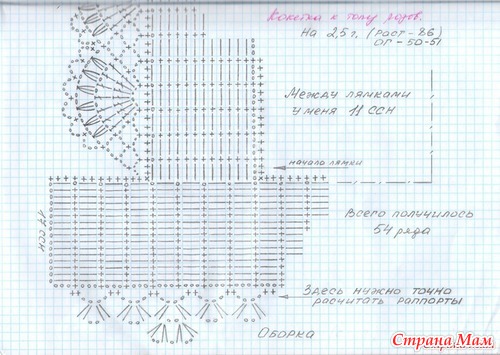 Кокетка к топу розов.
На 2,5 г. (рост - 86)
ОГ - 50-51
Между лямками
у меня 11 ССН
начало лямки
Всего получилось
54 ряда
ССН
Здесь нужно точно
расчитать раппорты
ОБОРКА
Страна Мам